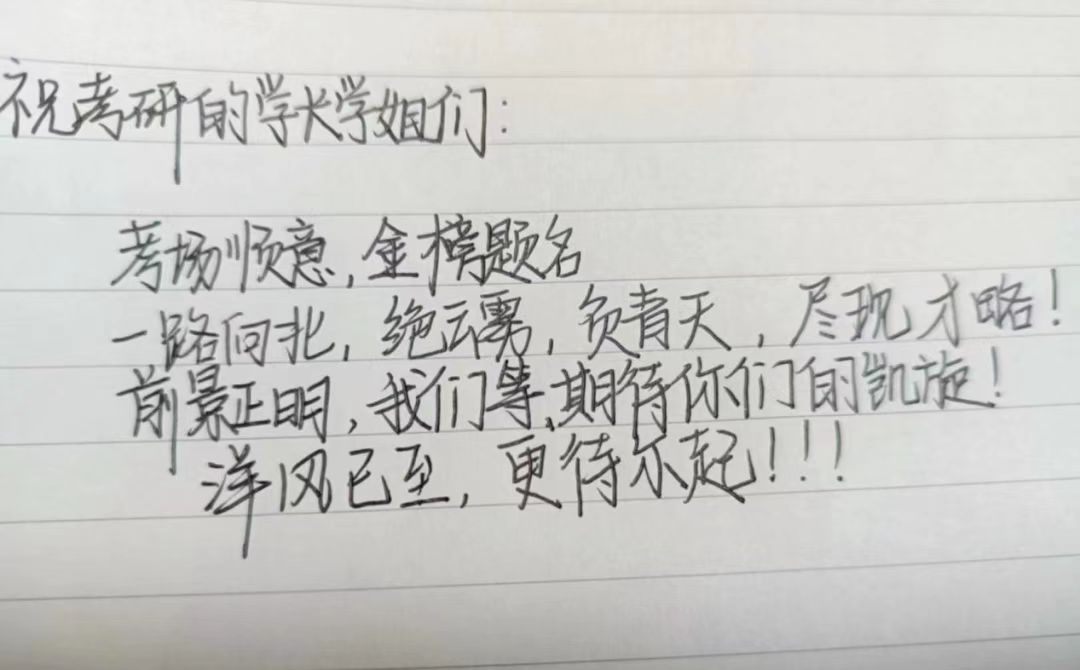 祝考研的学长学姐们:
考场顺意,金榜题名
一路向北,绝云雾,负青天,尽现才略!
前景正明,我们等、期待你们的凯旋!
洋风已至,更待尔起!!!